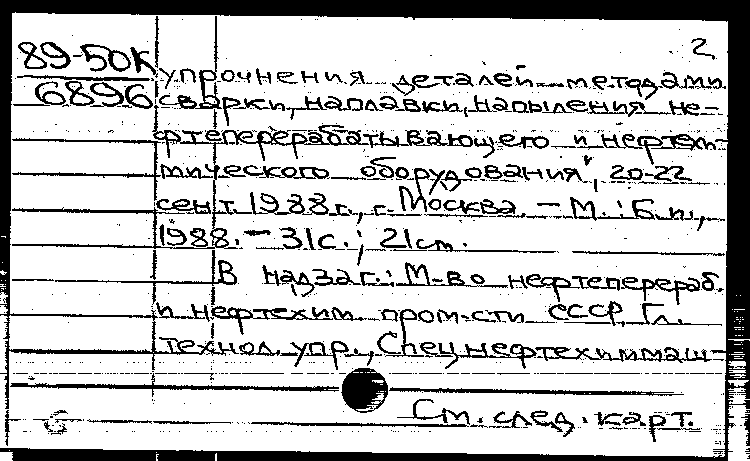 2
89-50К
6896
упрочнения деталей методами
сварки, наплавки, напыления не-
фтеперерабатывающего и нефтехи-
мического оборудования", 20-22
сент. 1988 г., г. Москва. - М. : Б. и.,
1988. - 31 с. ; 21 см.
В надзаг.: М-во нефтеперераб.
и нефтехим. пром-сти СССР, Гл.
технол. упр., Спецнефтехиммаш-
См. след. карт.
6